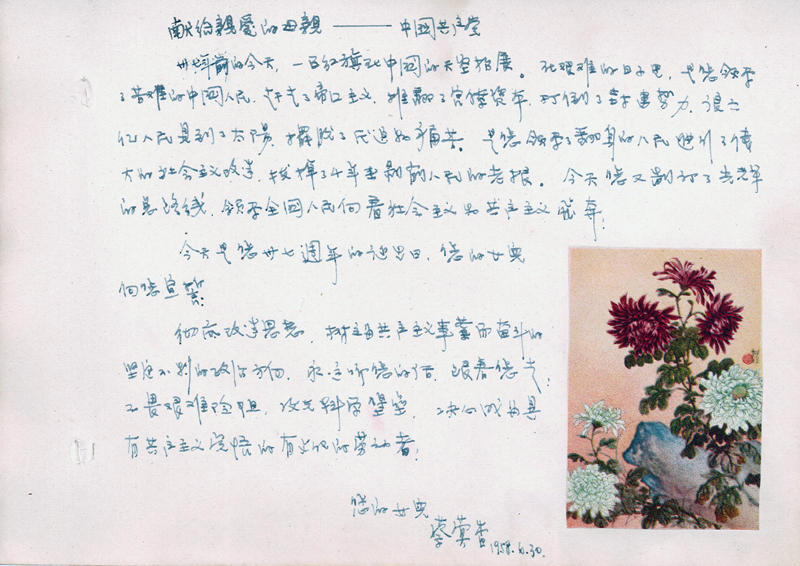 献给親爱的母親——中國共产党
卅七年前的今天,一面红旗在中國的天空招展。在艰难的日子里,是您领导
了苦难的中國人民,赶走了帝国主义,推翻了官僚资本,打倒了封建势力,使六
亿人民見到了太陽,擺脱了民过的痛苦。是您领导了翻身的人民進行了偉
大的社会主义改造,拔掉了4千年来剥削人民的老根。今天您又制訂了
的总路线,领导全國人民向着社会主义和共产主义飛奔!
今天是您卅七週年的诞生日,您的女兒
向您宣誓:
彻底改造思想,树立为共产主义事業而奋斗的
坚定不移的政治方向,永远听您的话,跟着您走,
不畏艰难险阻,攻克科学堡垒,决心成为具
有共产主义觉悟的有文化的劳动者!
您的女兒
1958.6.30.